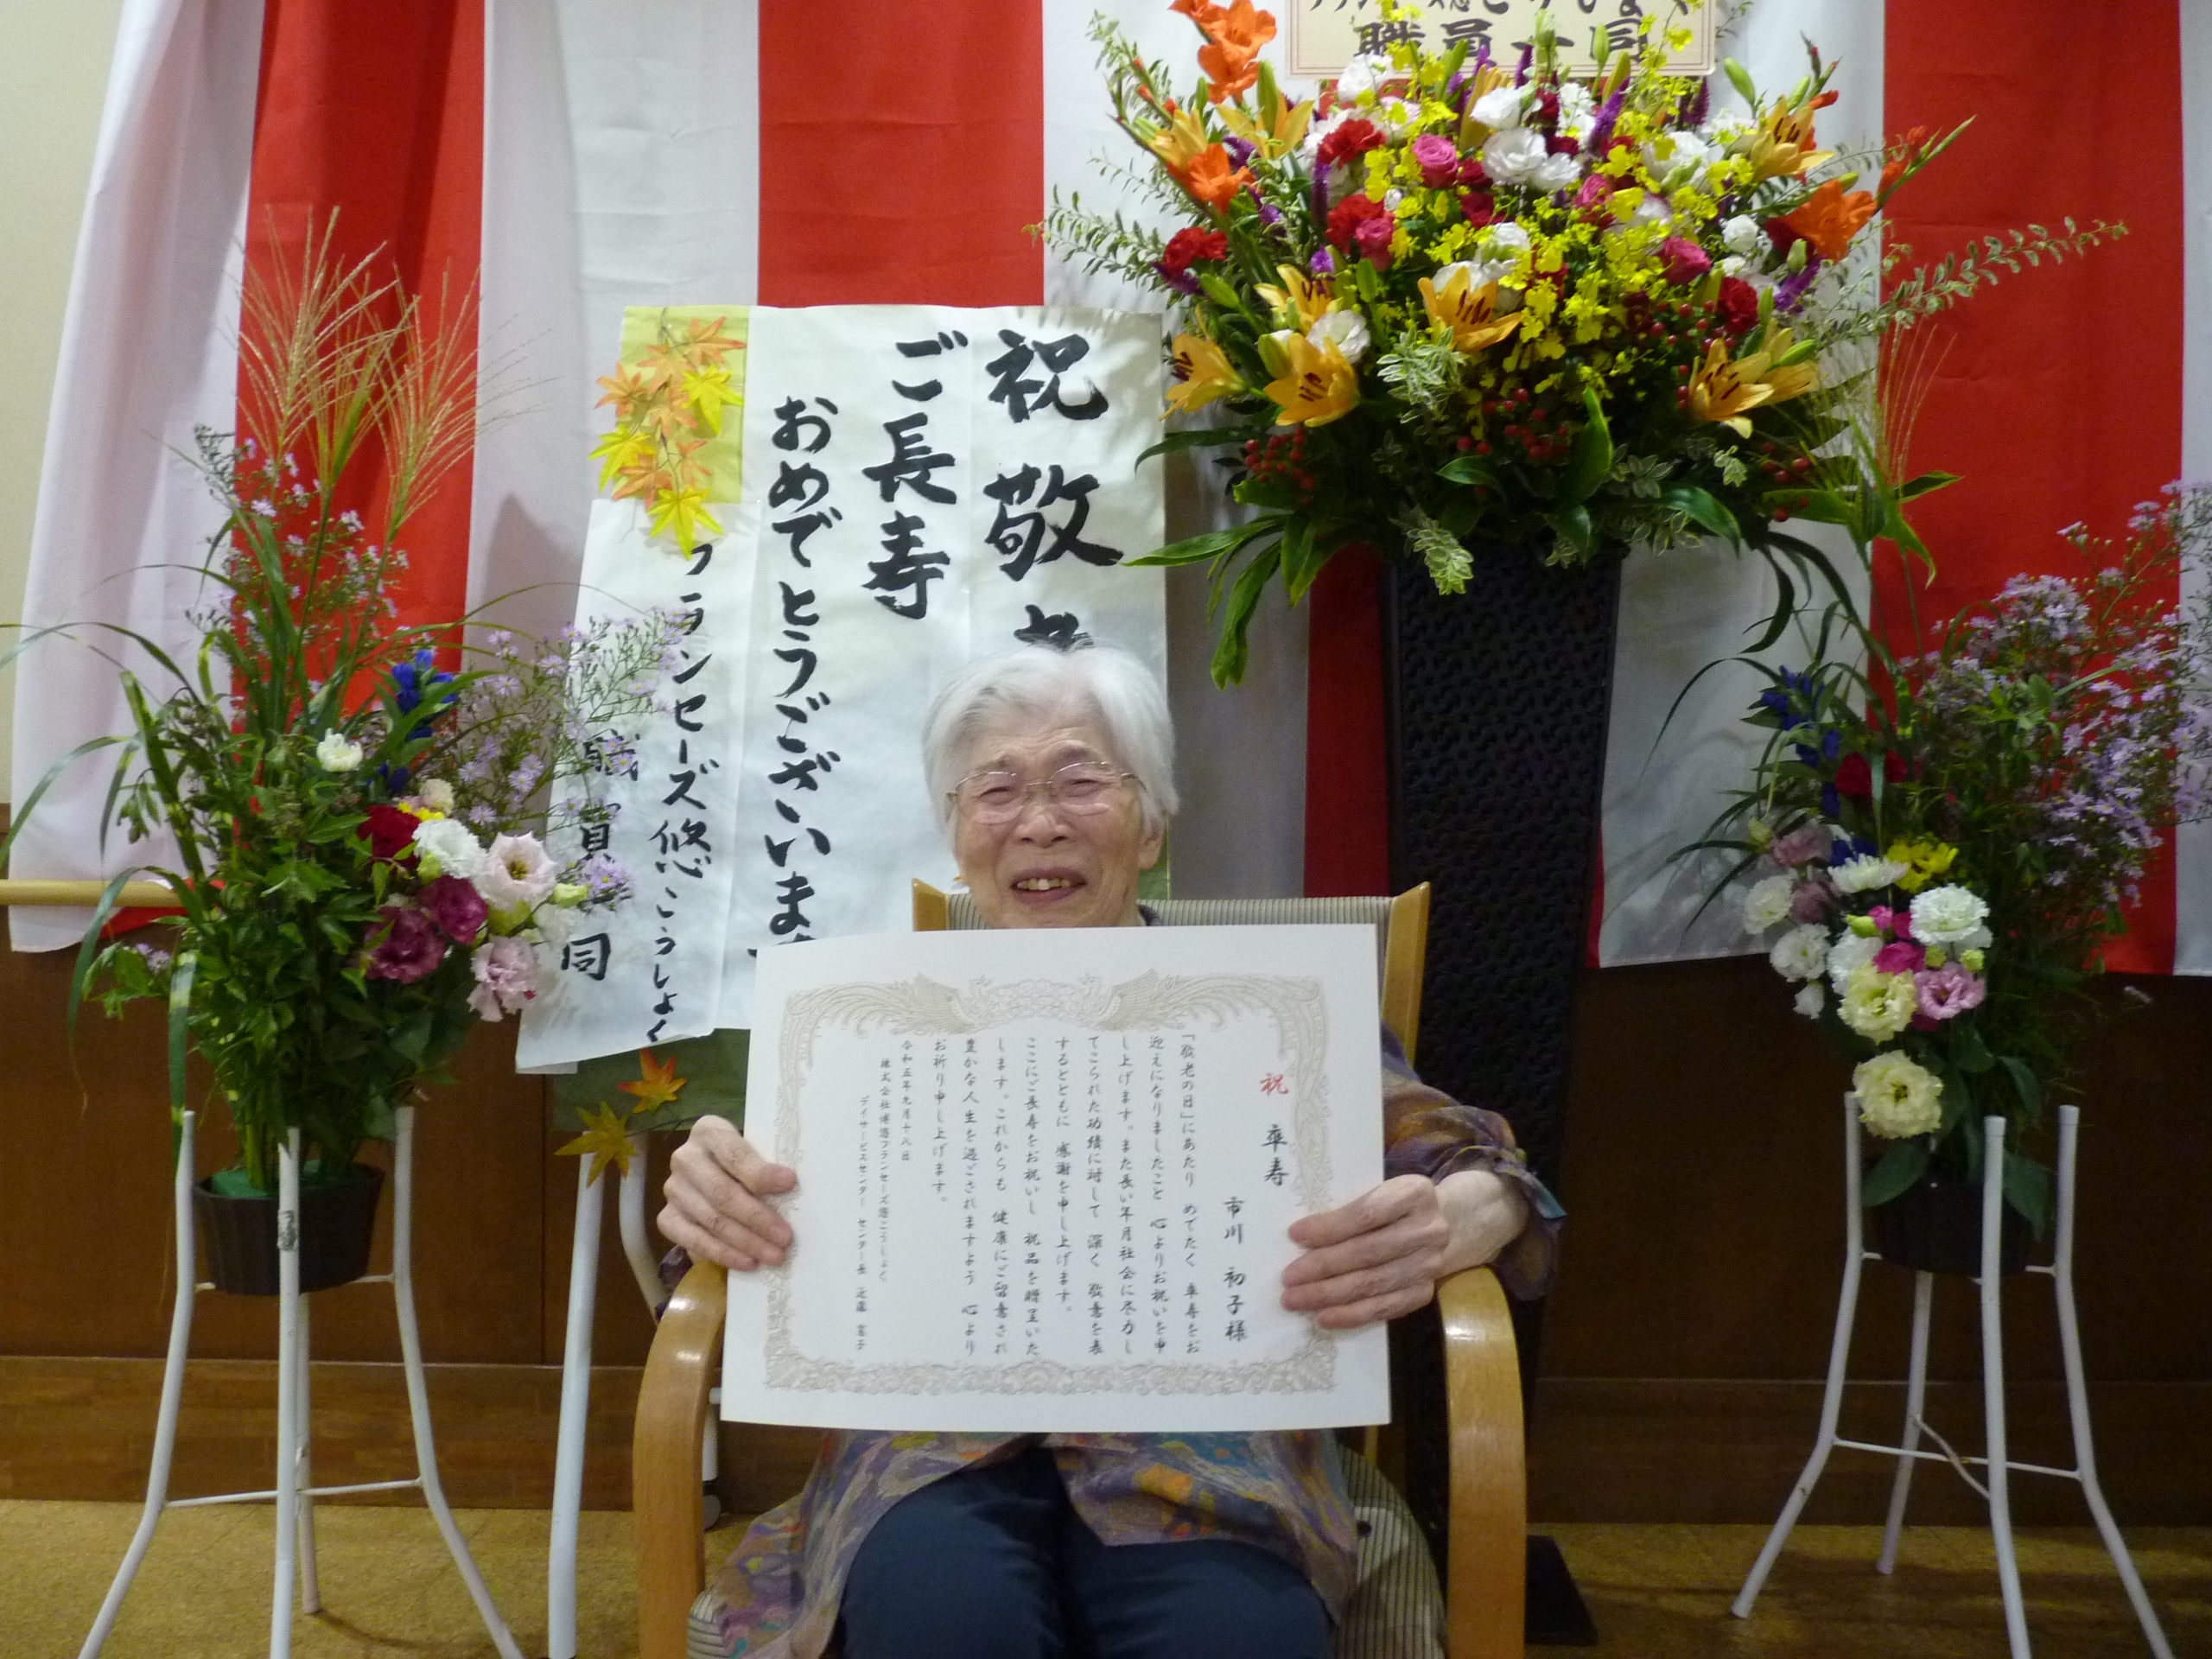 職員一同
祝敬
ご長寿
おめでとうございま
ランセーズ悠こうしょく
職員
同
祝
卒寿
市川 初子様
「敬老の日」にあたり めでたく 卒寿をお
迎えになりましたこと 心よりお祝いを申
し上げます。また長い年月社会に尽力し
てこられた功績に対して 深く 敬意を表
するとともに 感謝を申し上げます。
ここにご長寿をお祝いし 祝品を贈呈いた
します。これからも 健康にご留意され
豊かな人生を過ごされますよう 心より
お祈り申し上げます。
令和五年九月十八日
株式会社博悠フランセーズ悠こうしょく
デイサービスセンター センター長 近藤 富子